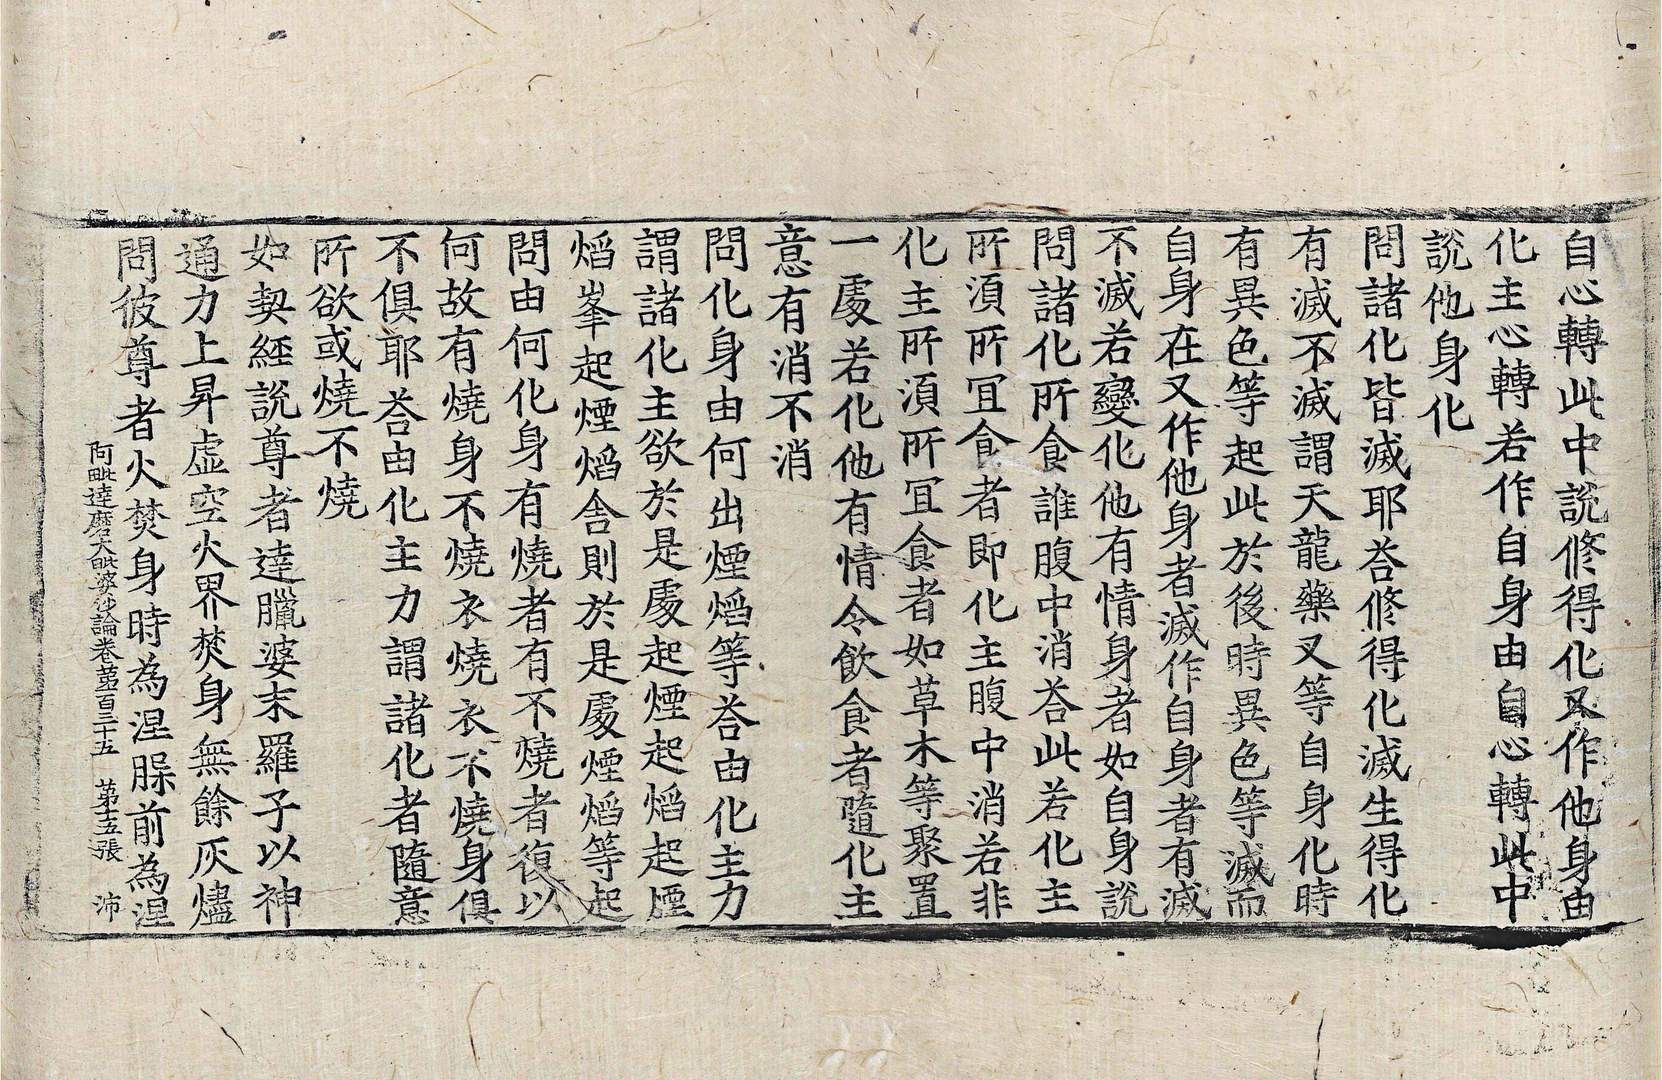 自心轉此中說修得化又作他身由
化主心轉若作自身由自心轉此中
說他身化
問諸化皆滅耶荅修得化滅生得化
有滅不滅謂天龍藥叉等自身化時
有異色等起此於後時異色等滅而
自身在又作他身者滅作自身者有滅
不滅若變化他有情身者如自身說
問諸化所食誰腹中消荅此若化主
所湏所冝食者即化主腹中消若非
化主所湏所冝食者如草木等聚置
一處若化他有情令飲食者隨化主
意有消不消
問化身由何出煙熖等荅由化主力
謂諸化主欲於是處起煙起熖起煙
熖峯起煙熖舎則於是處煙熖等起
問由何化身有燒者有不燒者復以
何故有燒身不燒衣燒衣不燒身俱
不俱耶荅由化主力謂諸化者隨意
所欲或燒不燒
如契經說尊者達臘婆末羅子以神
通力上昇虛空火界焚身無餘灰燼
問彼尊者火焚身時為涅槃前為涅
阿毗達磨大毗婆沙論卷第一百三十五 第十五張 沛